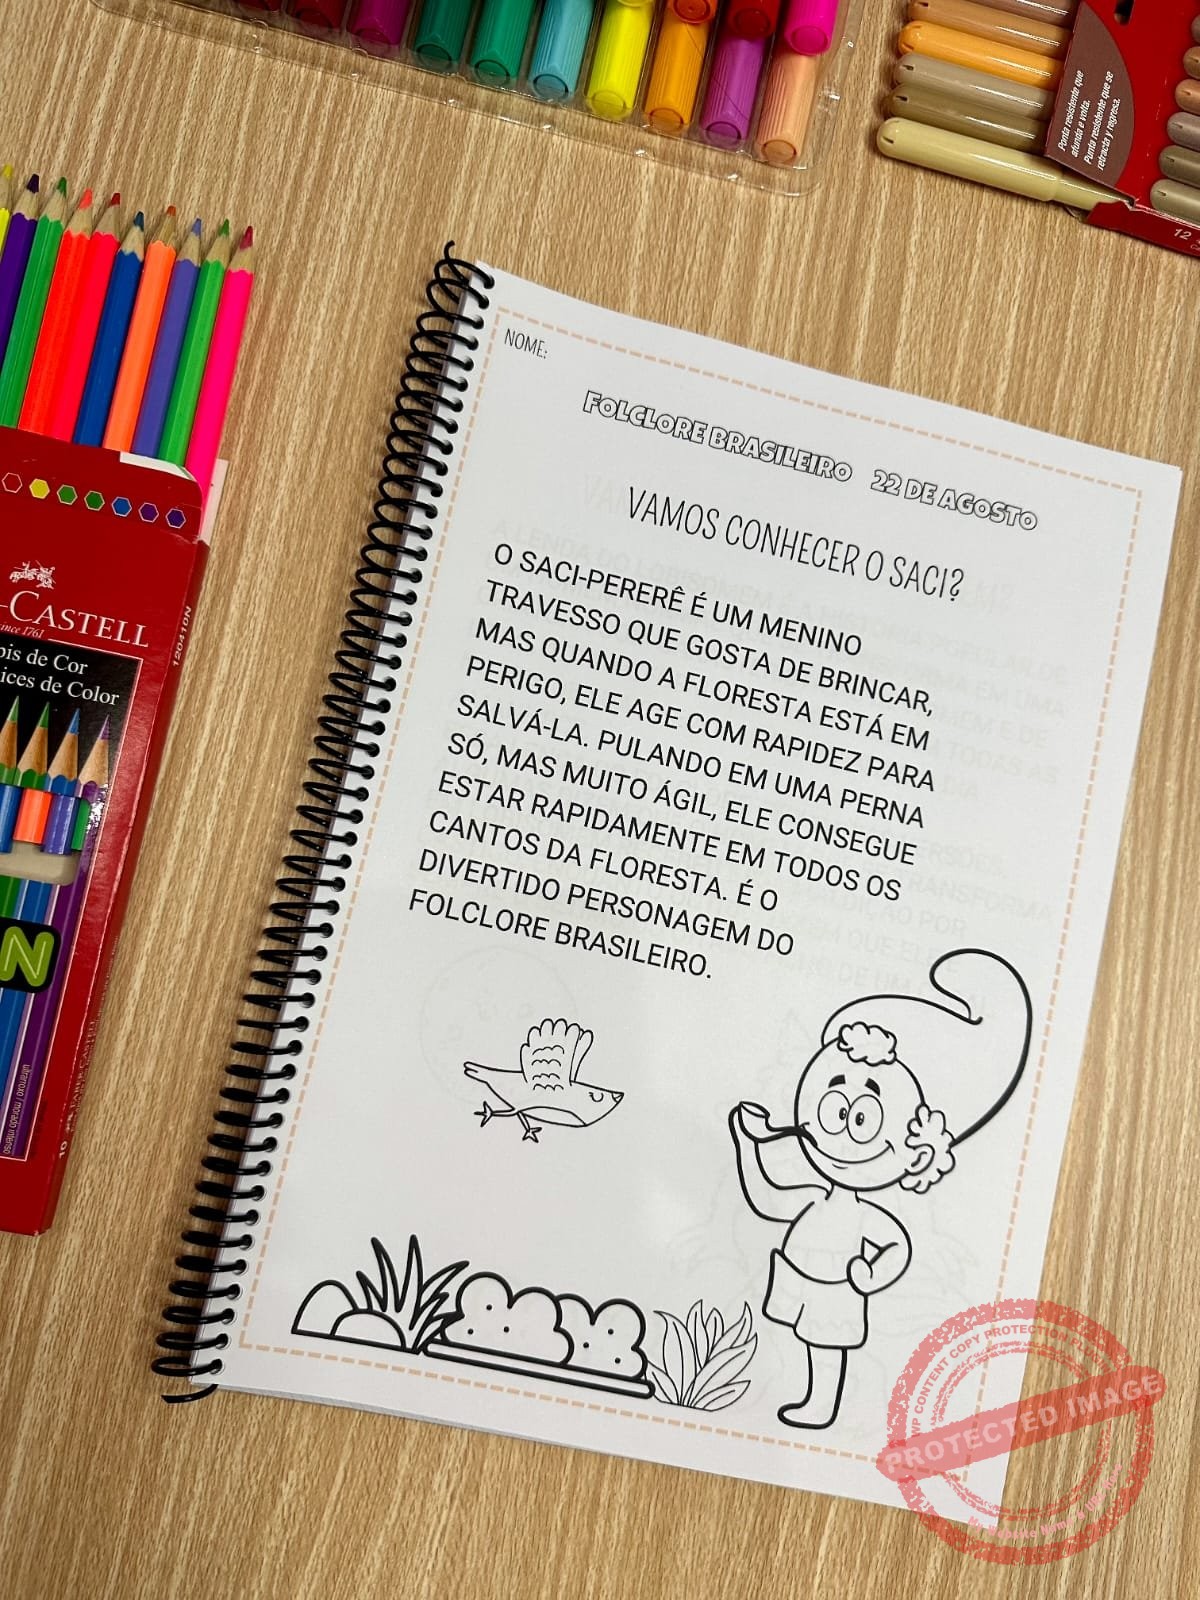 Ponta resistente que
afunda e volta.
Punta resistente que se
retracta y regresa.
12
NOME:
FOLCLORE BRASILEIRO 22 DE AGOSTO
VAMOS CONHECER O SACI?
O SACI-PERERÊ É UM MENINO
TRAVESSO QUE GOSTA DE BRINCAR,
MAS QUANDO A FLORESTA ESTÁ EM
PERIGO, ELE AGE COM RAPIDEZ PARA
SALVÁ-LA. PULANDO EM UMA PERNA
SÓ, MAS MUITO ÁGIL, ELE CONSEGUE
ESTAR RAPIDAMENTE EM TODOS OS
CANTOS DA FLORESTA. É O
DIVERTIDO PERSONAGEM DO
FOLCLORE BRASILEIRO.
-CASTELL
since 1761
120410N
pis de Cor
ices de Color
N
ultrarroxo / morado intenso
WP CONTENT COPY PROTECTION
PROTECTED IMAGE
My Website Name